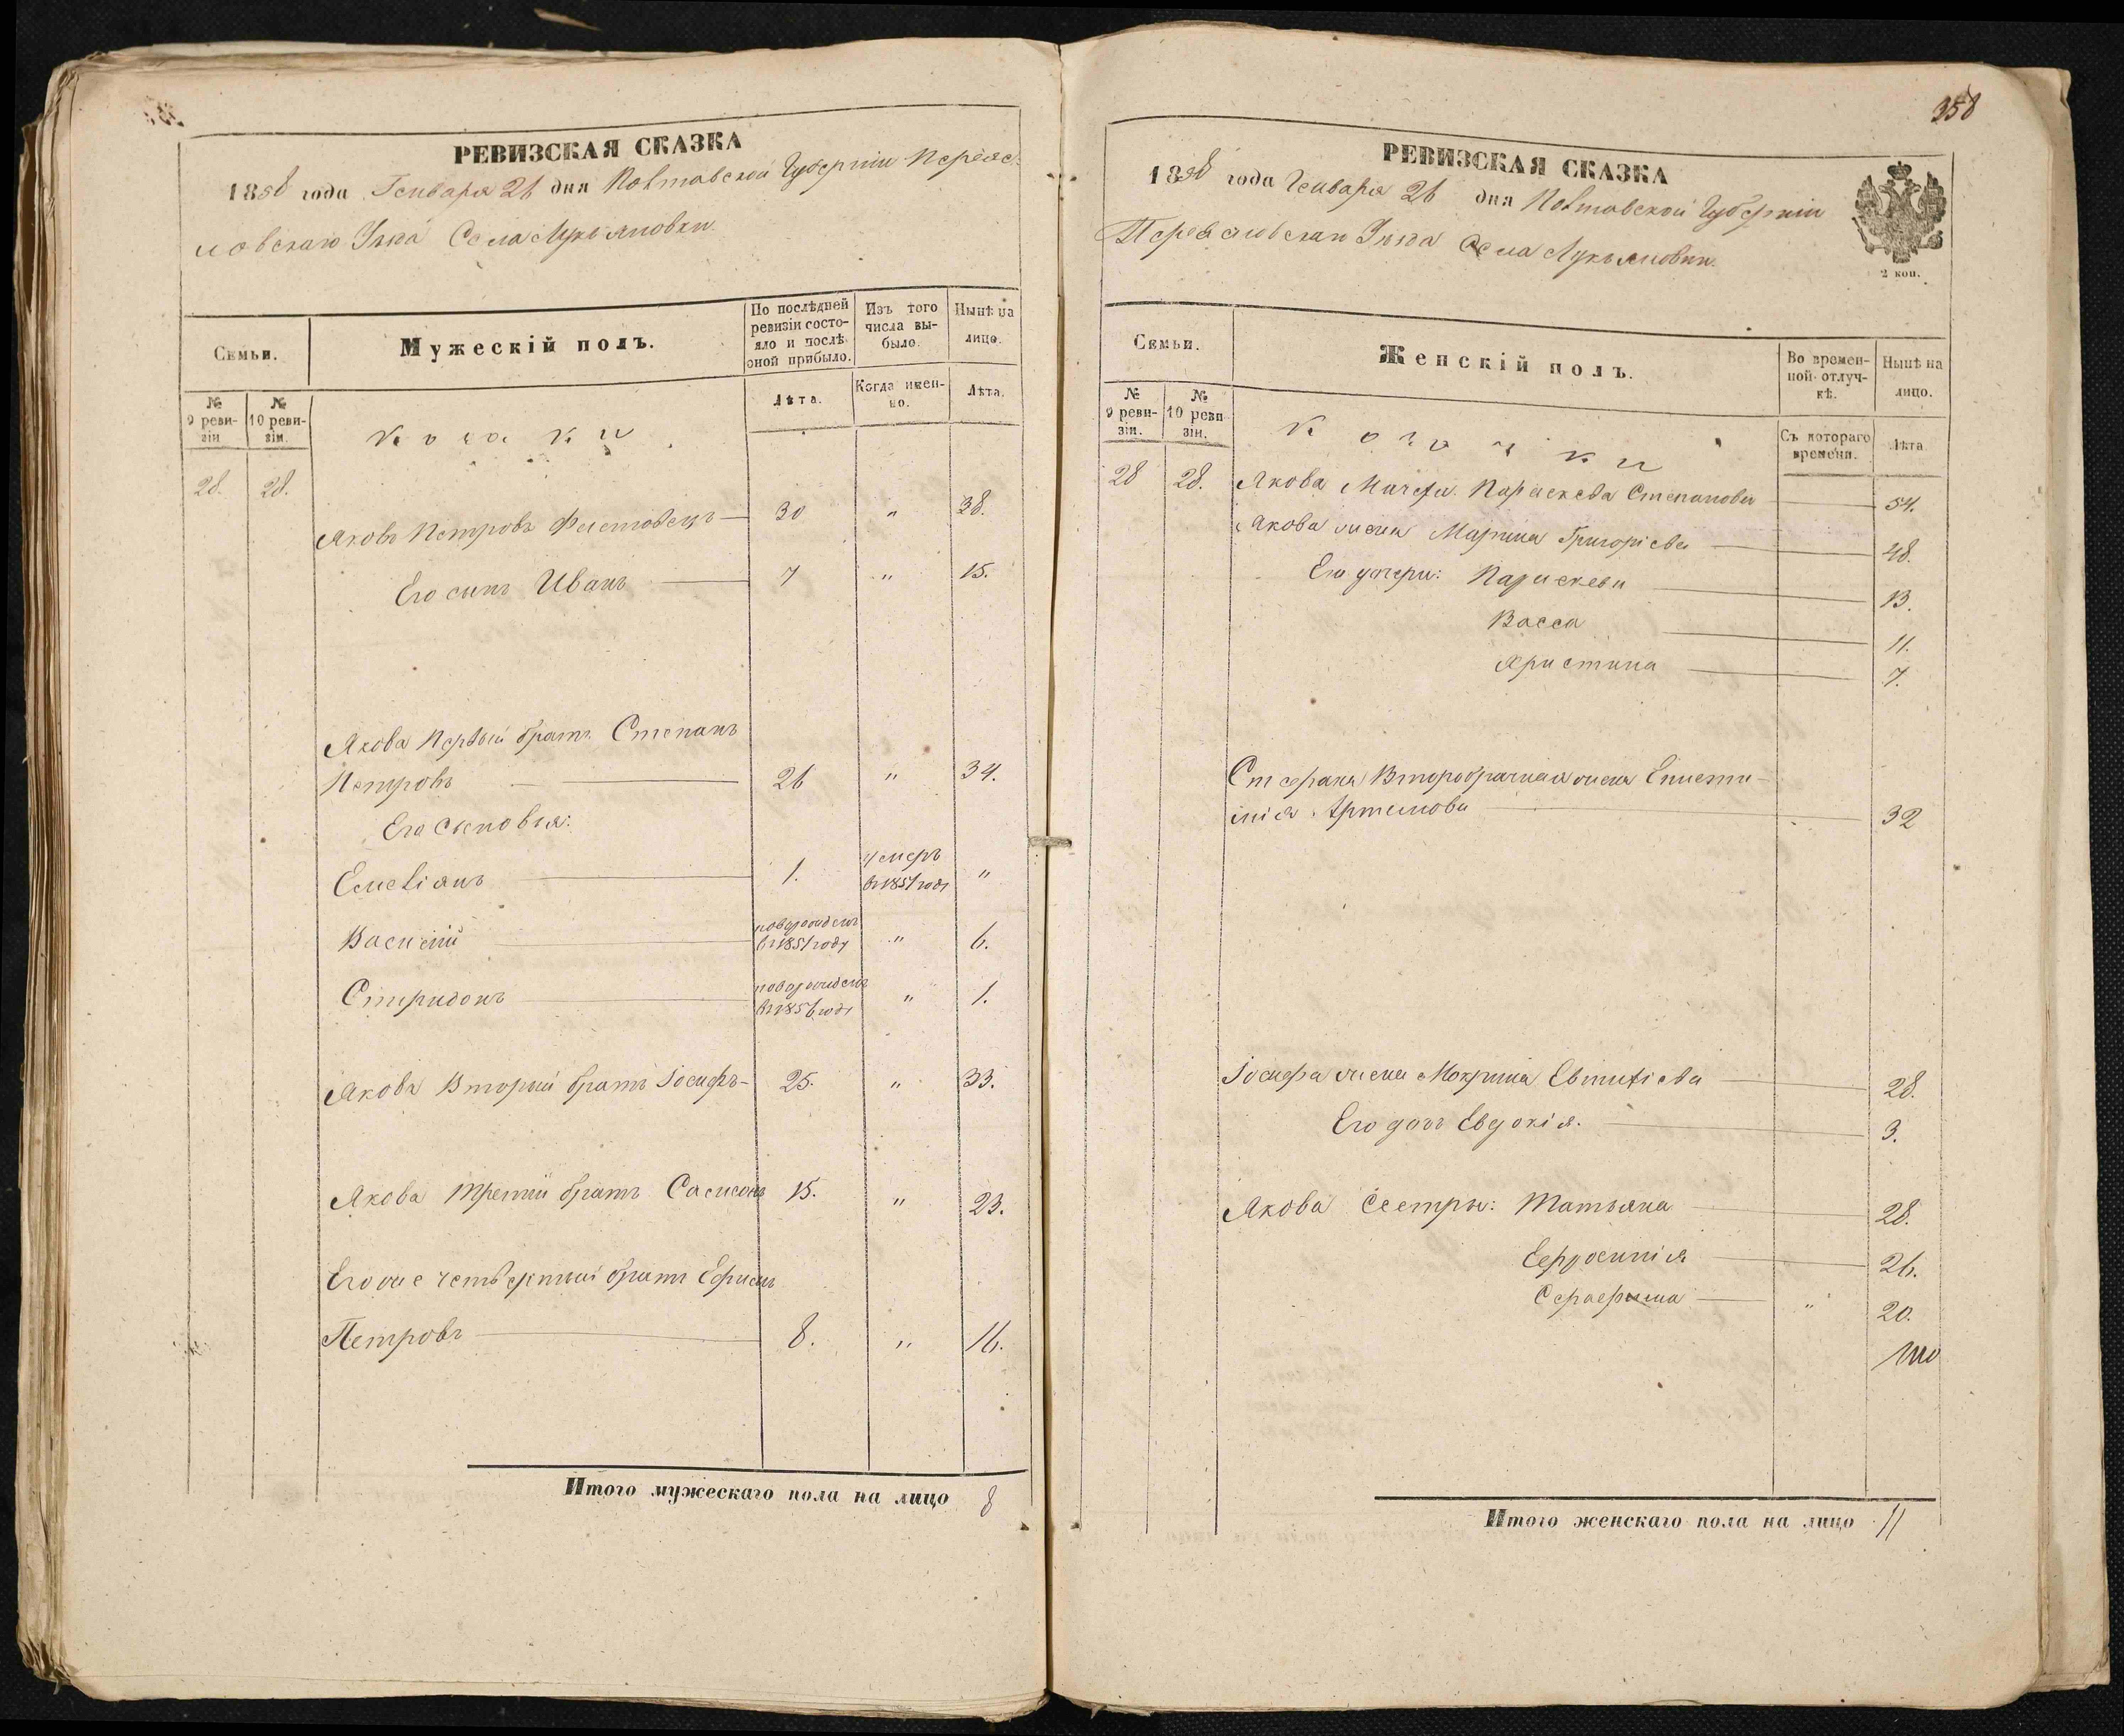 РЕВИЗСКАЯ СКАЗКА
1858 года Генваря 26 дня Полтавской Губерніи Переяс-
ловскаго Уѣзда Села Лукьяновки
Семьи.
Мужескій полъ.
По послѣдней ревизіи состояло и послѣ оной прибыло.
Изъ того числа выбыло.
Нынѣ на лицо.
№ 9 ревизіи
№ 10 ревизіи.
Козаки
Лѣта.
Когда именно.
Лѣта.
28. 28.
Яковъ Петровъ 30 " 38.
Его сынъ Иванъ 7 " 15.
Якова Первый братъ Степанъ
Петровъ 26 " 34.
Его Сыновья:
Емеліянъ 1. умеръ въ 1851 году "
Василій новорожденъ въ 1851 году " 6.
Спиридонъ новорожденъ въ 1856 году " 1.
Якова Вторый братъ Іосифъ 25. " 33.
Якова третій братъ Самсонъ 15. " 23.
Его же четвертый братъ Ефимъ
Петровъ 8. " 16.
Итого мужескаго пола на лицо 8
358
РЕВИЗСКАЯ СКАЗКА
1858 года Генваря 26 дня Полтавской Губерніи
Переясловскаго Уѣзда Села Лукьяновки.
2 коп.
Семьи.
Женскій полъ.
Во временной отлучкѣ.
Нынѣ на лицо.
№ 9 ревизіи.
№ 10 ревизіи.
Козачки
Съ котораго времени.
Лѣта
28 28. Якова Мачеха Параскева Степанова 54.
Якова жена Марина Григоріева 48.
Его дочери: Параскева 13.
Васса 11.
Христина 7.
Стефана Второбрачная жена Еписти-
мія Артемова 32
Іосифа жена Мокрина Евтихіева 28.
Его дочь Евдокія. 3.
Якова Сестры: Татьяна 28.
Ефросинія 26.
Серафима " 20.
Итого женскаго пола на лицо 11